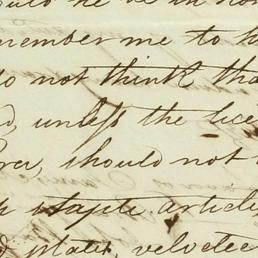 member me to
do not think tha
unless the lice
should not
staple articles
plates, velvetee